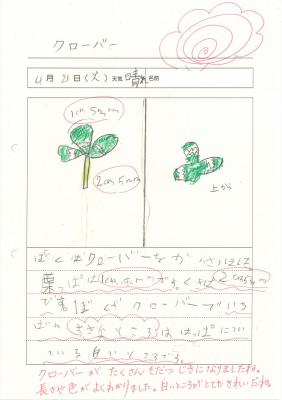 クローバー
4月21日(火) 天気 晴れ 名前
1cm5mm
2cm5mm
上から
ぼくはクローバーをかきました。
葉っぱは1cm5mmです。くきは2cm5mm
です。ぼくがクローバーでいち
ばんすきなところははっぱについ
ている白いところです。
クローバーがたくさんそだつじきになりましたね。
長さや色がよくわかりました。白いところがとてもきれいだね。